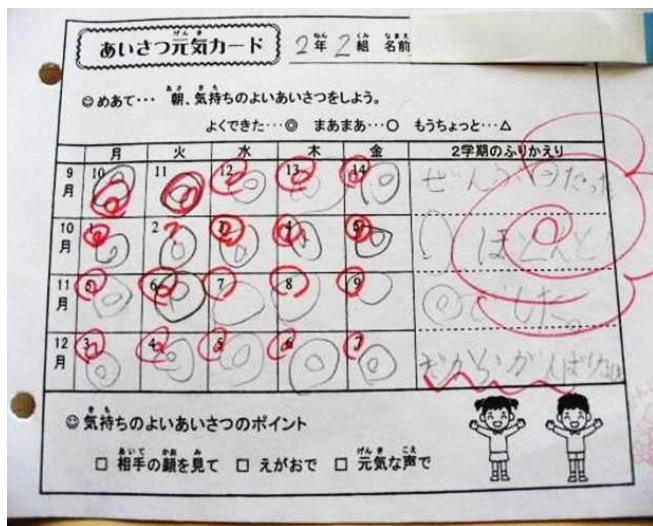 あいさつ元気カード 2年2組 名前
☺めあて… 朝、気持ちのよいあいさつをしよう。
よくできた…◎ まあまあ…○ もうちょっと…△
月 火 水 木 金 2学期のふりかえり
9月 10 11 12 13 14 ぜんぶ◎だった
10月 1 2 ? 3 4 5 ほとんど
11月 5 6 7 8 9 ◎でした。
12月 3 4 5 6 7 だからがんばり
☺気持ちのよいあいさつのポイント
□ 相手の顔を見て □ えがおで □ 元気な声で